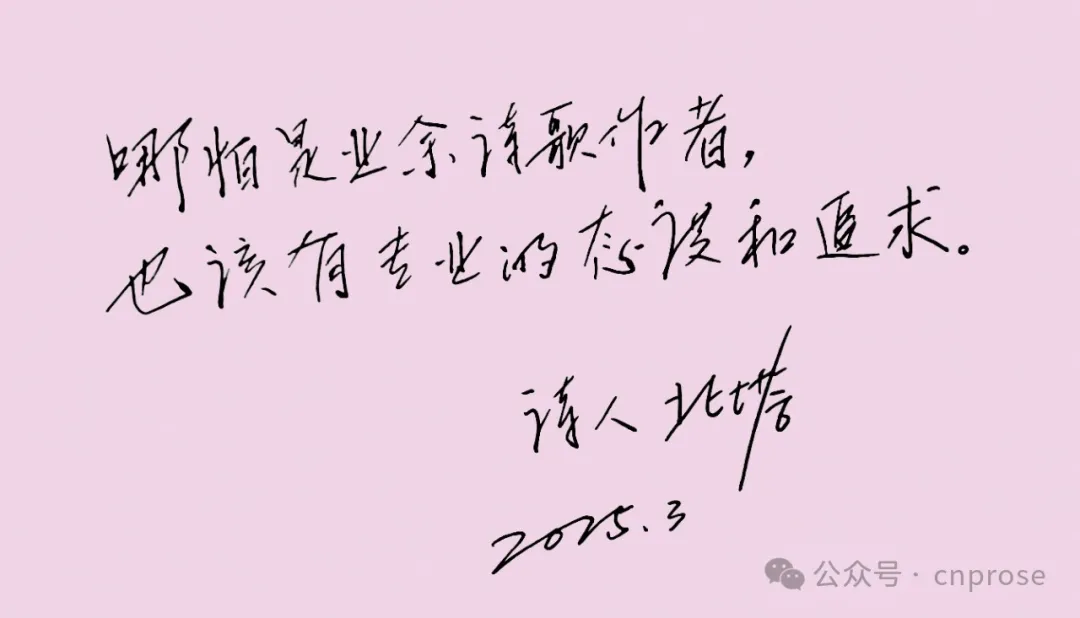 哪怕是业余诗歌作者，
也该有专业的态度和追求。
诗人 北塔
2025.3
公众号 · cnprose